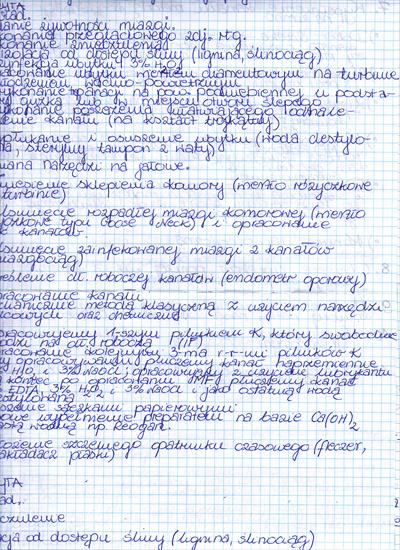 YTA
ład.
anie żywotności miazgi.
konanie przeglądowego zdj. rtg.
konanie znieczulenia
izolacja od dostępu śliny (lignina, ślinociąg)
zynfekcja ubytku 3% H2O2
acowanie ubytku wiertłem diamentowym na turbinie
łodzeniem wodno-powietrznym
ykonanie trepanacji na pow. podniebiennej u podsta-
y guzka lub w miejscu otworu ślepego
ykonanie poszerzenia ułatwiającego odnale-
enie kanału (na kształt trójkątny)
płukanie i osuszenie ubytku (woda destylo-
na, sterylny tampon z waty)
iana narzędzi na jałowe.
iesienie sklepienia komory (wiertło różyczkowe
turbinie)
sunięcie rozpadłej miazgi komorowej (wiertło
yczkowe typu Goose Neck) i opracowanie
ć kanałów.
sunięcie zainfekowanej miazgi z kanałów
miazgociąg)
eślenie dł. roboczej kanałów (endometr oporowy)
racowanie kanału
echaniczne metodą klasyczną z użyciem narzędzi
ęcznych oraz chemiczną.
racowujemy 1-szym pilnikiem K, który swobodnie
odzi na dł. roboczą (IAF)
racowanie kolejnymi 3-ma r-r-mi pilników K
y opracowywaniu płuczemy kanał naprzemiennie
H2O2 i 3% NaOCl; opracowujemy z użyciem lubrykantu
koniec po opracowaniu MF płuczemy kanał
EDTA, 3% H2O2 i 3% NaOCl i jako ostatnią wodą
estylowaną
uszenie sączkami papierowymi
owe wypełnienie preparatem na bazie Ca(OH)2
astą wodną np. Reogan.
ożenie szczelnego opatrunku czasowego (fleczer,
akładacz płaski)
YTA
ad.
czulenie
cja od dostępu śliny (lignina, ślinociąg)